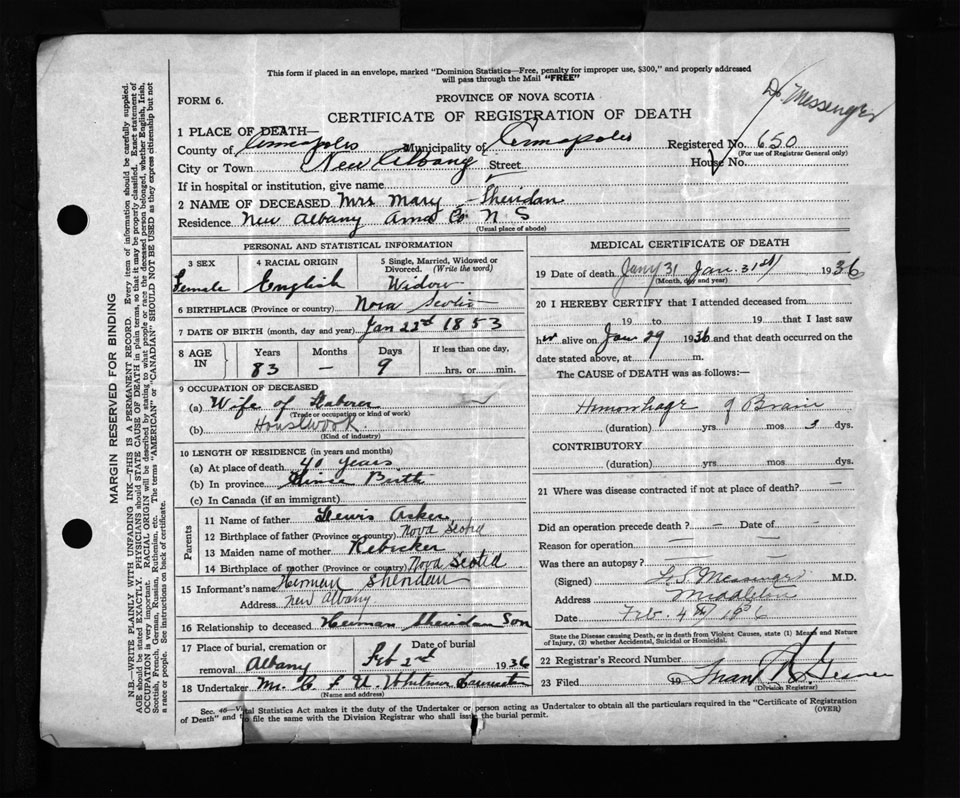 This form if placed in an envelope, marked "Dominion Statistics—Free, penalty for improper use, $300," and properly addressed
will pass through the Mail "FREE"
Dr. Messenger
FORM 6.
PROVINCE OF NOVA SCOTIA
CERTIFICATE OF REGISTRATION OF DEATH
1 PLACE OF DEATH—
County of Annapolis Municipality of Annapolis Registered No. 650
(For use of Registrar General only)
City or Town New Albany Street House No.
If in hospital or institution, give name
2 NAME OF DECEASED Mrs Mary Sheridan
Residence New Albany Anna Co N S
(Usual place of abode)
PERSONAL AND STATISTICAL INFORMATION
3 SEX 4 RACIAL ORIGIN 5 Single, Married, Widowed or
Divorced. (Write the word)
Female English Widow
6 BIRTHPLACE (Province or country) Nova Scotia
7 DATE OF BIRTH (month, day and year) Jan 22nd 1853
8 AGE IN Years Months Days If less than one day,
83 – 9 hrs. or min.
9 OCCUPATION OF DECEASED
(a) Wife of Laborer
(Trade or occupation or kind of work)
(b) Housework
(Kind of industry)
10 LENGTH OF RESIDENCE (in years and months)
(a) At place of death 40 years
(b) In province Since Birth
(c) In Canada (if an immigrant)
Parents
11 Name of father Lewis Acker
12 Birthplace of father (Province or country) Nova Scotia
13 Maiden name of mother Rebecker
14 Birthplace of mother (Province or country) Nova Scotia
15 Informant's name Herman Sheridan
Address New Albany
16 Relationship to deceased Herman Sheridan Son
17 Place of burial, cremation or Date of burial
removal Albany Feb 2nd 1936
18 Undertaker Mr. C. F. Whitman
(Name and address)
MEDICAL CERTIFICATE OF DEATH
19 Date of death Jany 31 Jan. 31st 1936
(Month, day and year)
20 I HEREBY CERTIFY that I attended deceased from
19 to 19 that I last saw
her alive on Jan 29 1936 and that death occurred on the
date stated above, at m.
The CAUSE of DEATH was as follows:—
Hemorrhage of Brain
(duration) yrs. mos. 3 dys.
CONTRIBUTORY
(duration) yrs. mos. dys.
21 Where was disease contracted if not at place of death? –
Did an operation precede death? – Date of -
Reason for operation —
Was there an autopsy? —
(Signed) Messenger M.D.
Address Middleton
Date Feb. 4th 1936
State the Disease causing Death, or in death from Violent Causes, state (1) Means and Nature
of Injury, (2) whether Accidental, Suicidal or Homicidal.
22 Registrar's Record Number
23 Filed 19
(Division Registrar)
Sec. 46—Vital Statistics Act makes it the duty of the Undertaker or person acting as Undertaker to obtain all the particulars required in the "Certificate of Registration
of Death" and to file the same with the Division Registrar who shall issue the burial permit.
(OVER)
MARGIN RESERVED FOR BINDING
N.B.—WRITE PLAINLY WITH UNFADING INK—THIS IS A PERMANENT RECORD. Every item of information should be carefully supplied.
AGE should be stated EXACTLY. PHYSICIANS should STATE CAUSE OF DEATH in plain terms, so that it may be properly classified. Exact statement of
OCCUPATION is very important. RACIAL ORIGIN will be described by stating to what people or race the deceased person belonged, whether English, Irish,
Scottish, French, German, Russian, Ruthenian, etc. The terms "AMERICAN" or "CANADIAN" SHOULD NOT BE USED as they express citizenship but not
a race or people. See instructions on back of certificate.